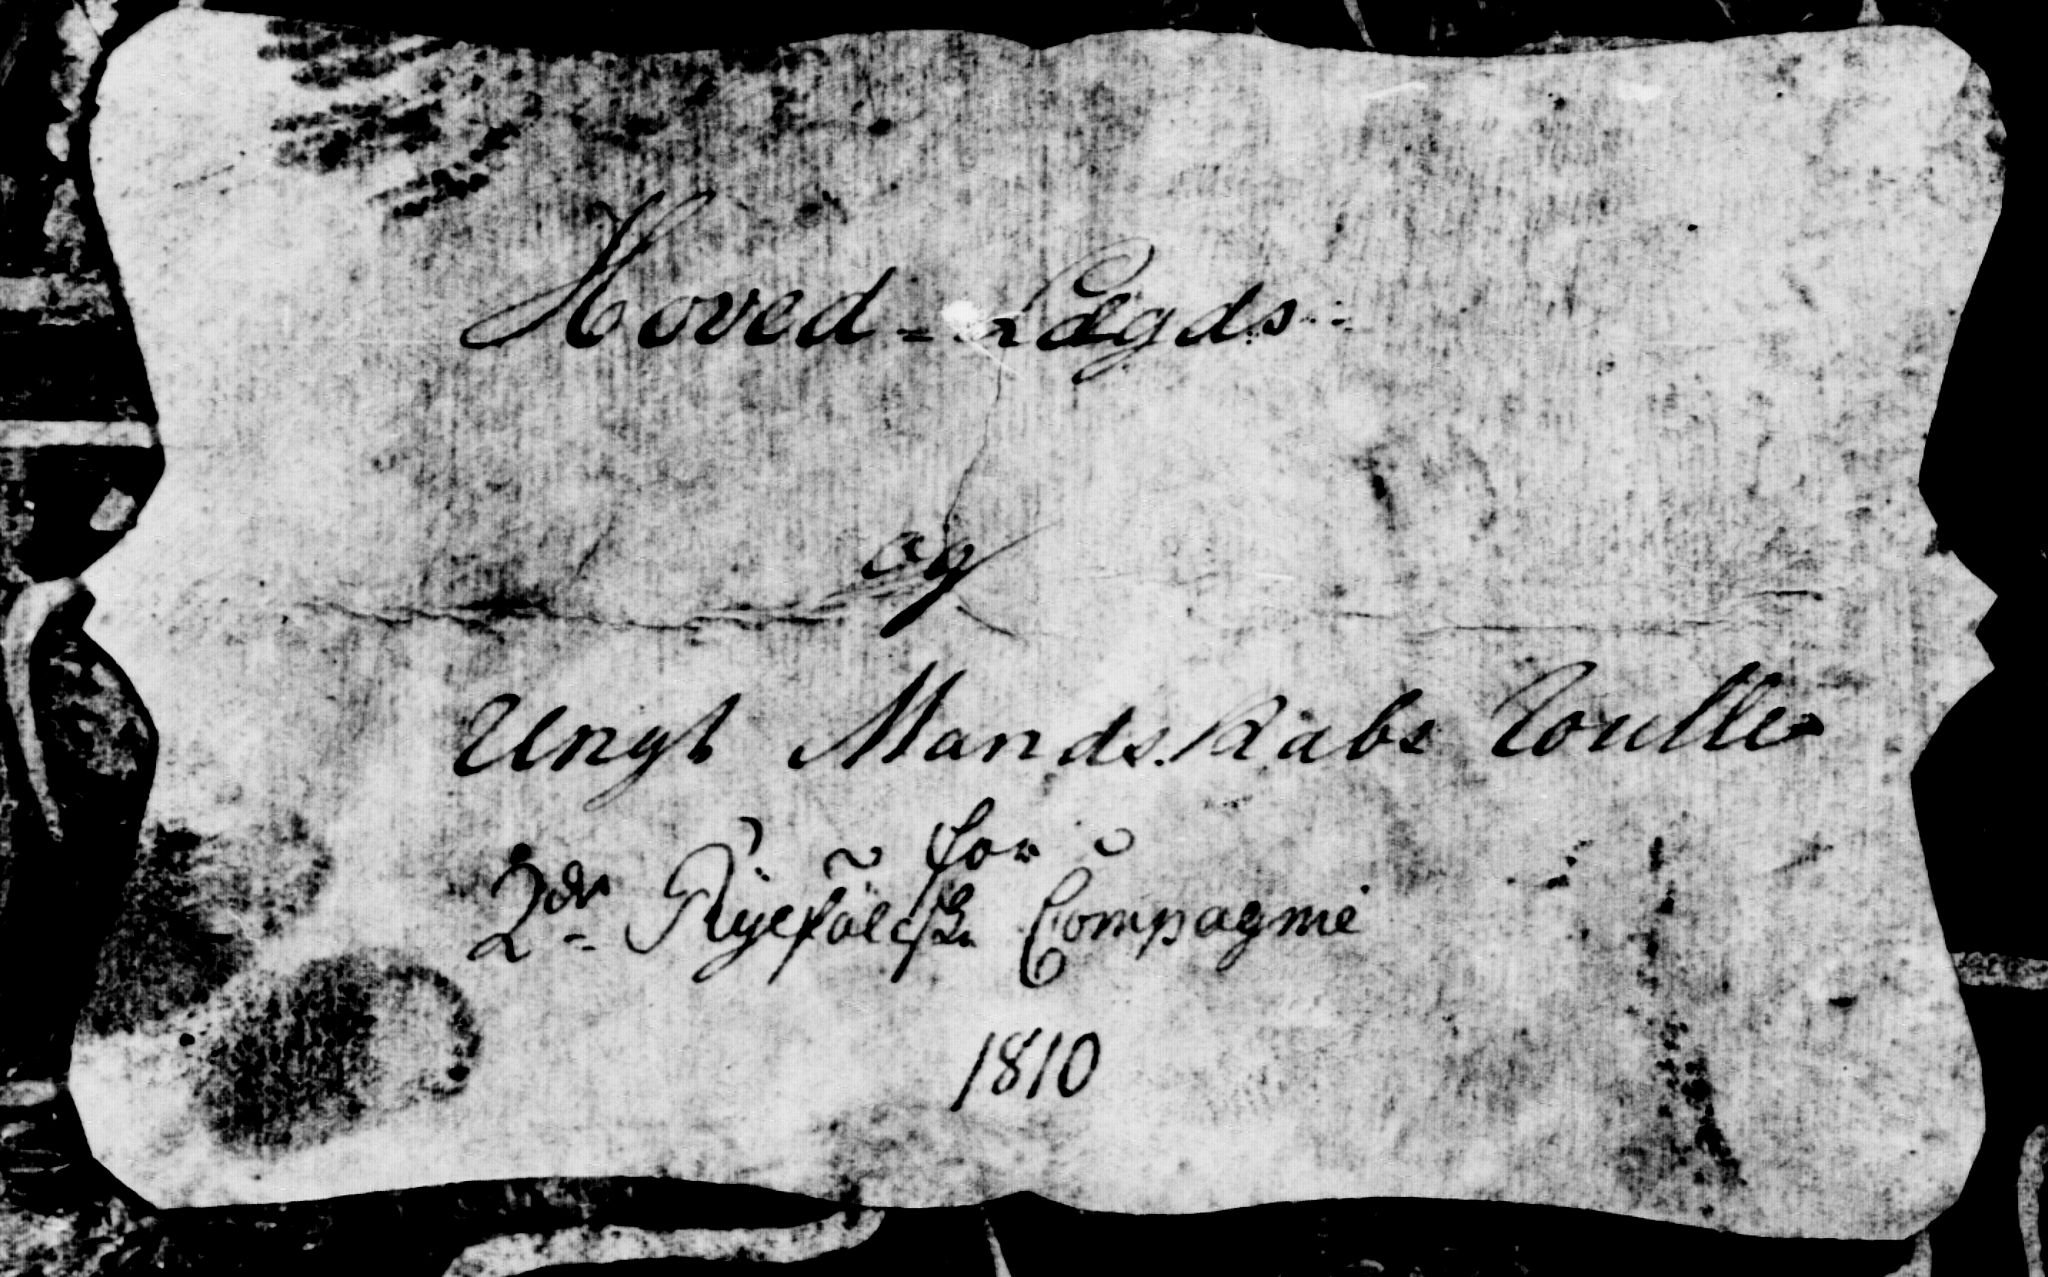 Hoved-Lægds-
og
Ungt Mandskabs Roulle
for
2den Ryefölcske Compagnie
1810